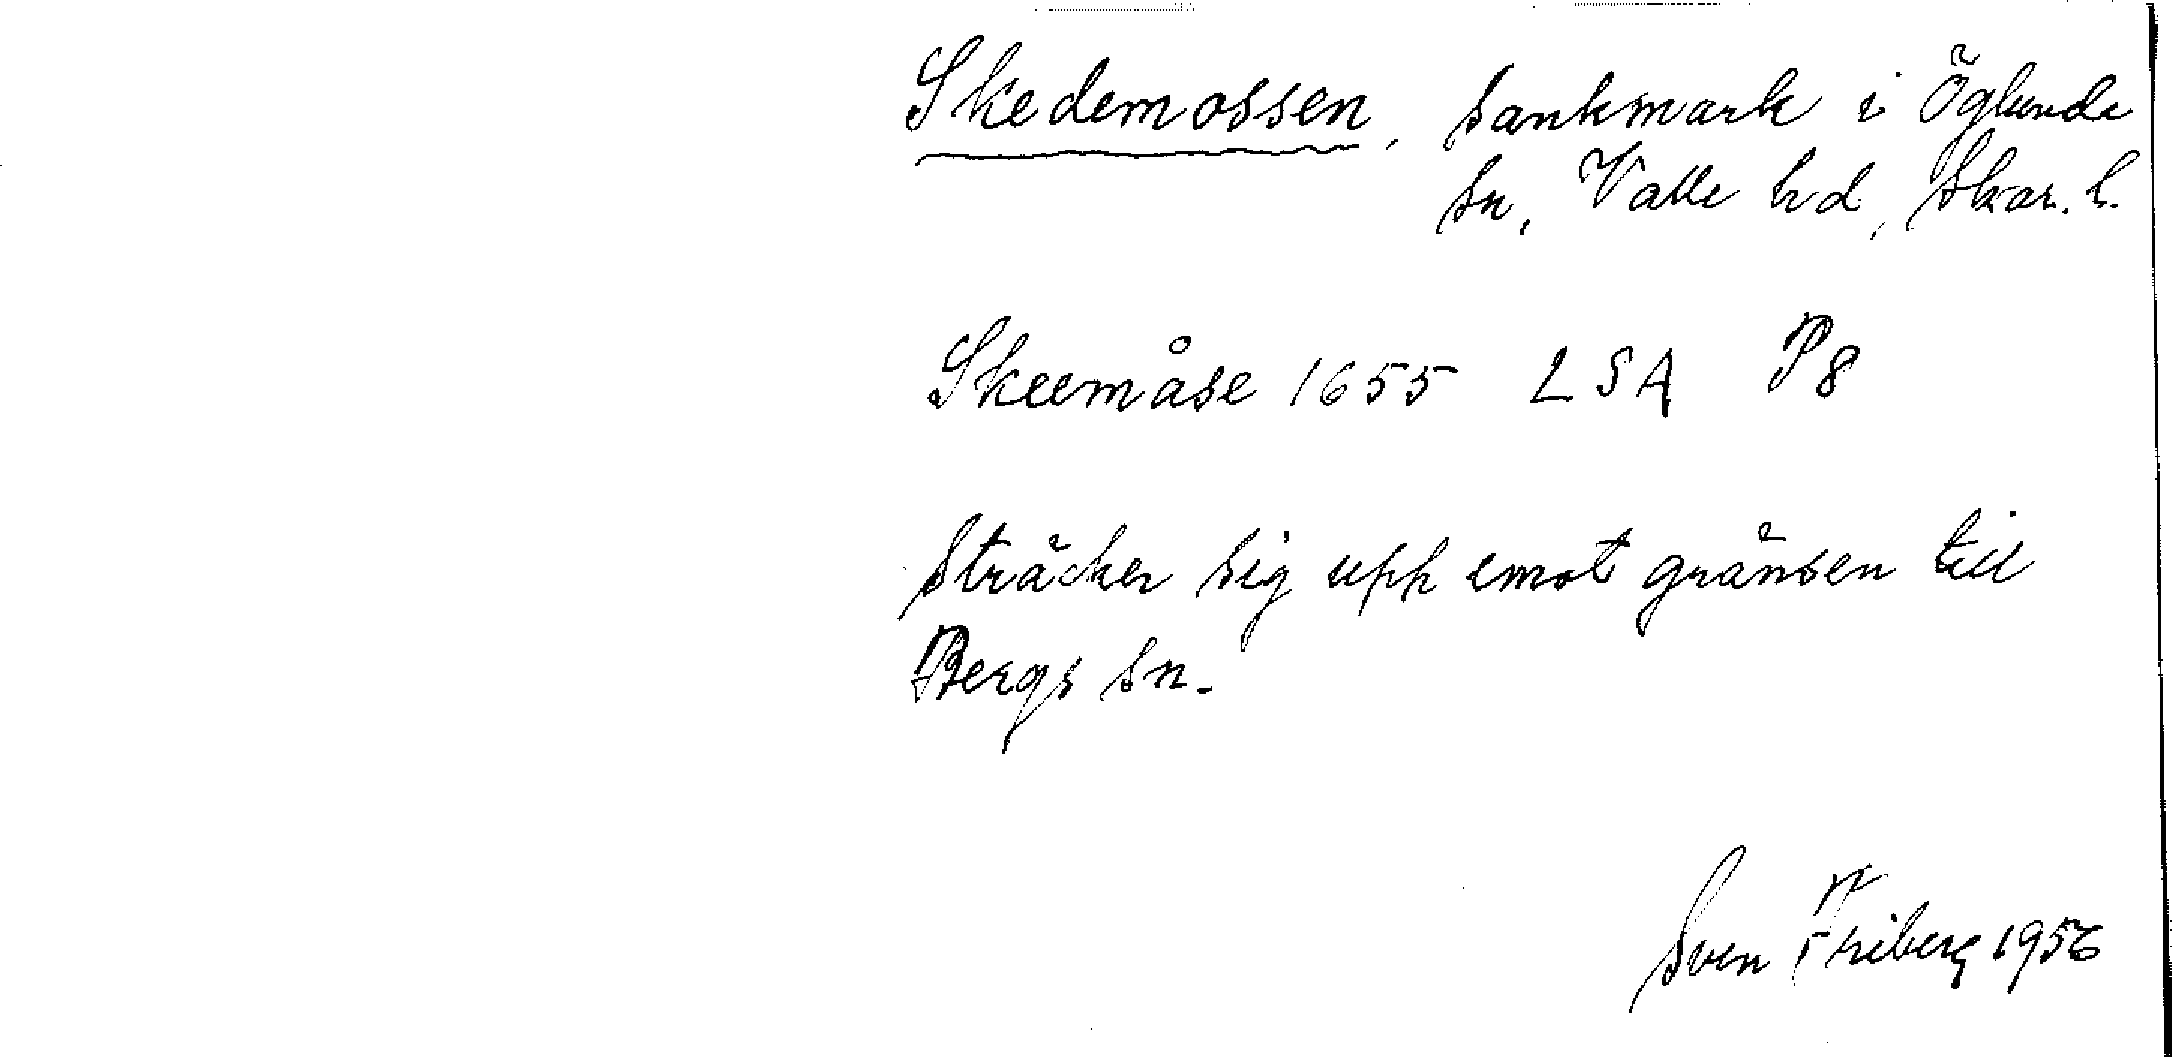 Skedemossen, sankmark i Öglunda
sn, Valle hd, Skar. l.
Skeemåse 1655 LSA P8
Sträcker sig upp emot gränsen till
Bergs sn.
Sven Friberg 1956